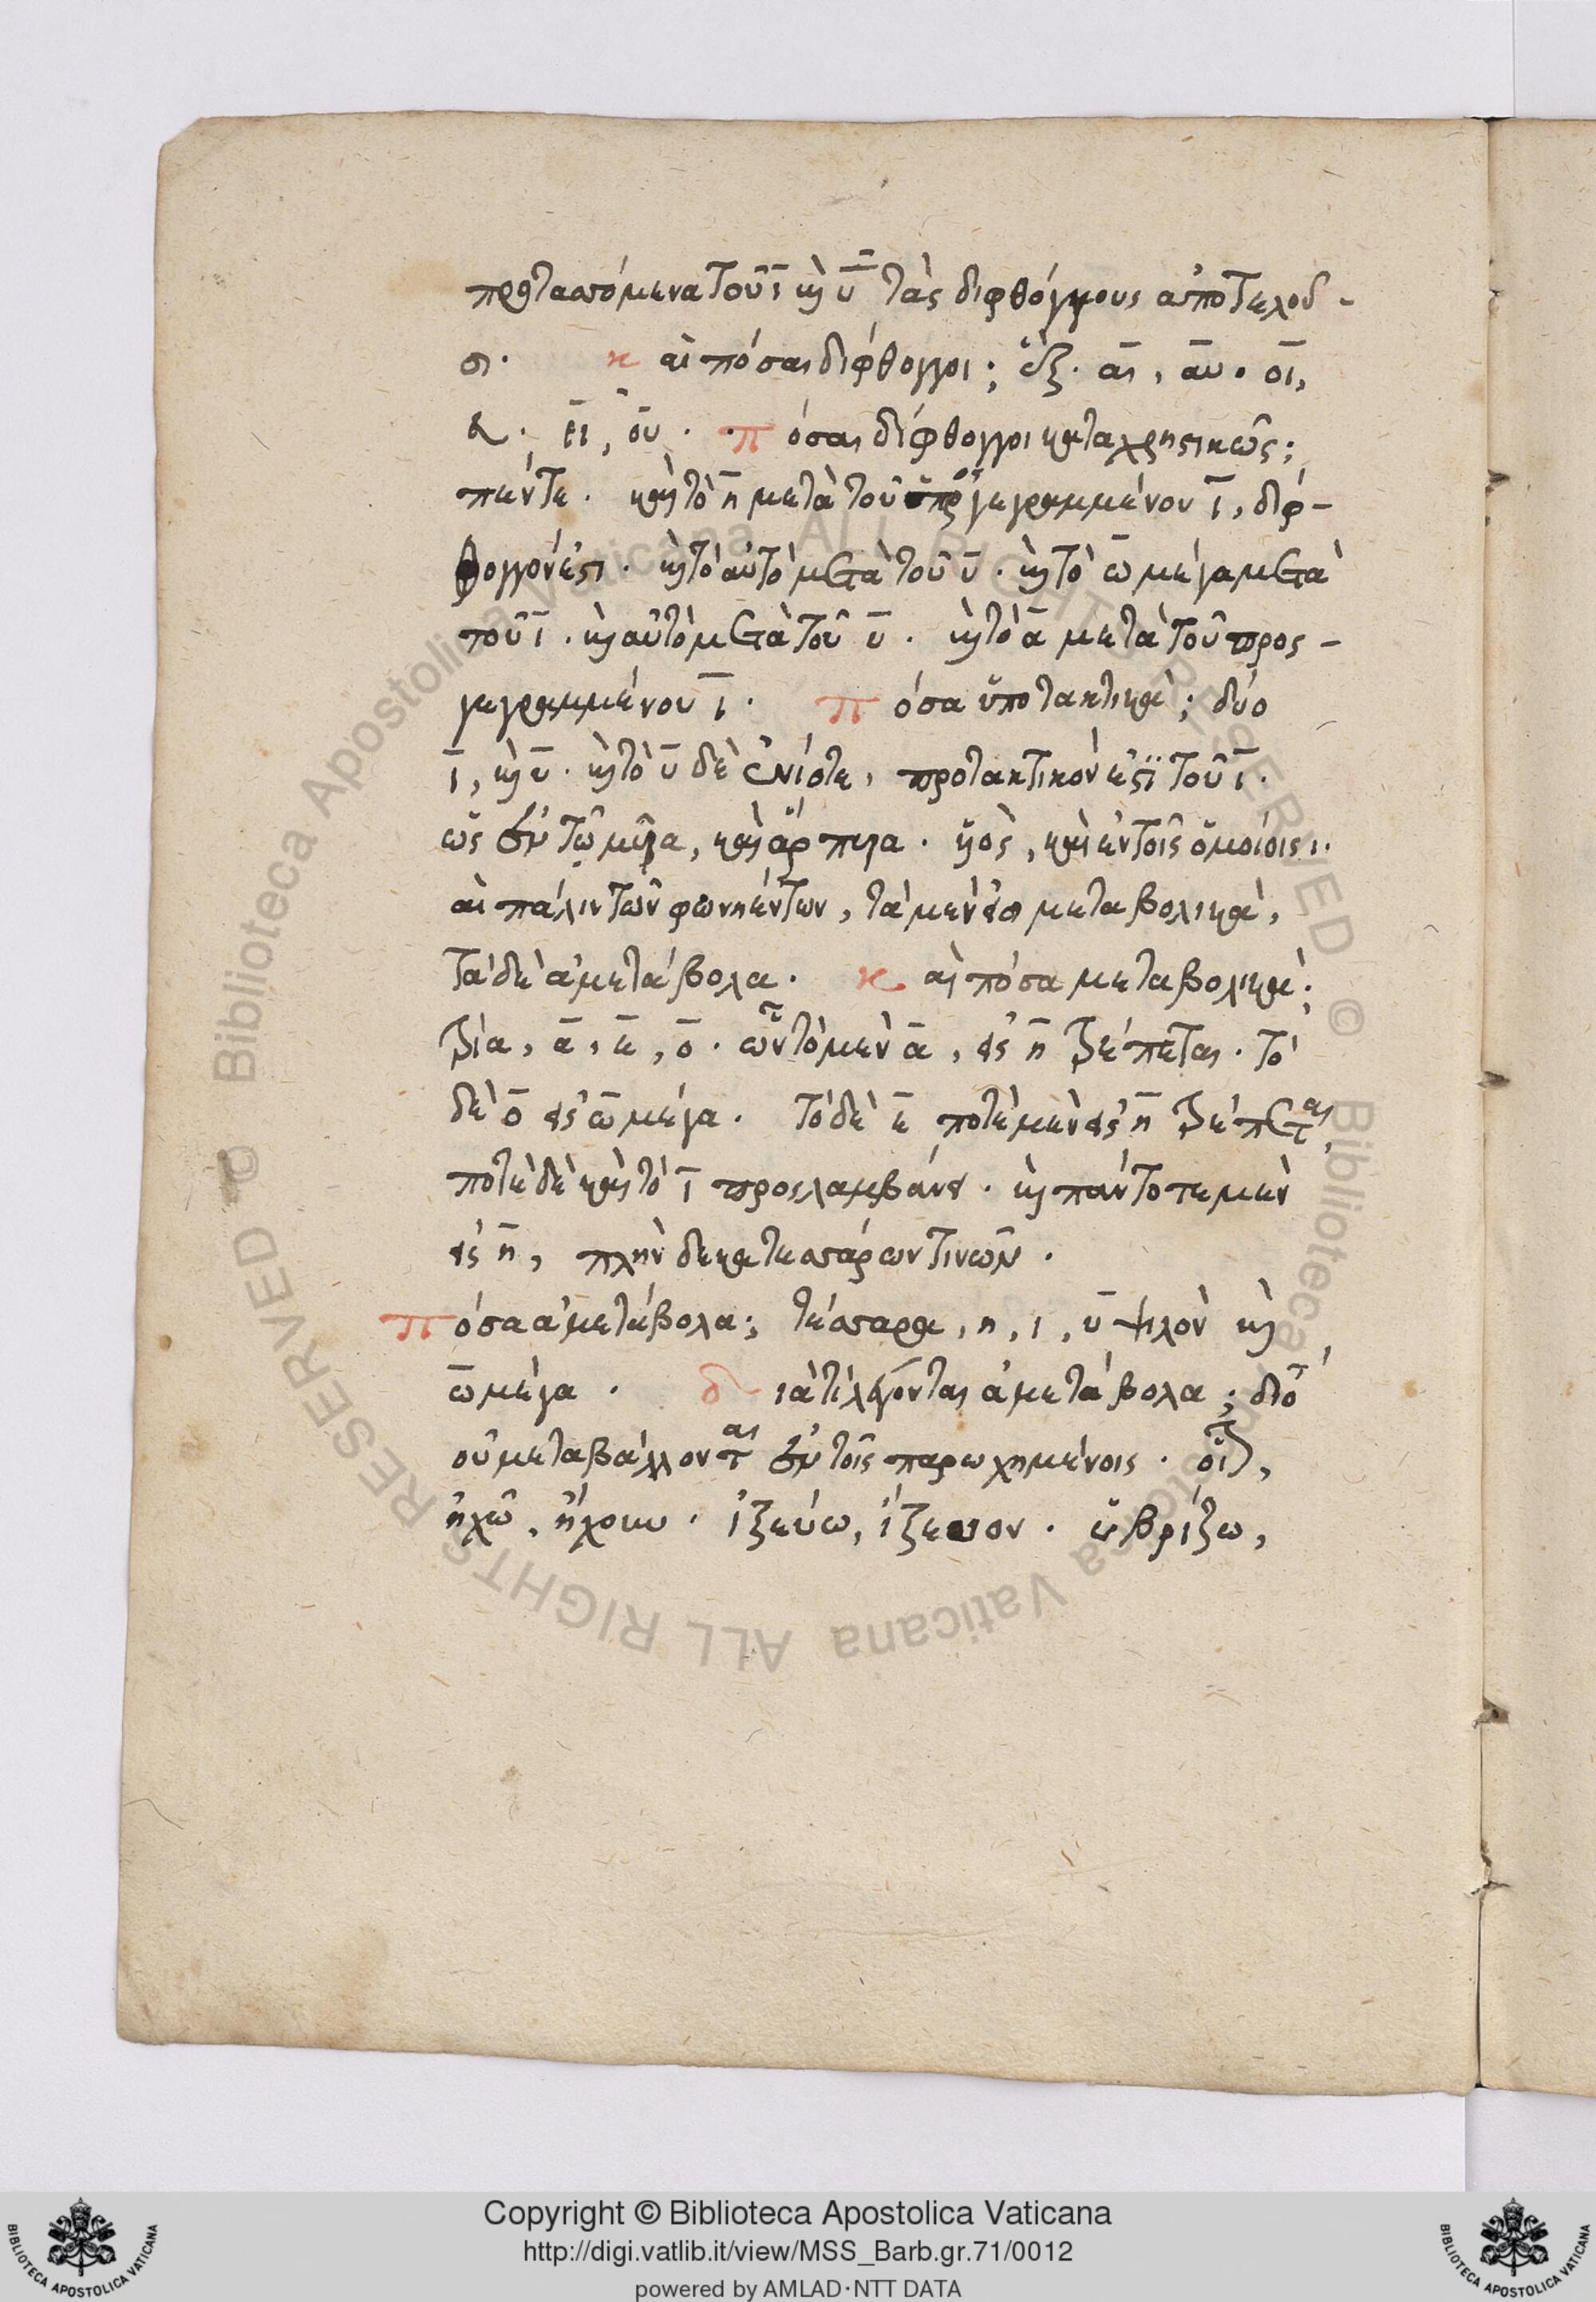 προτασσόμενα τοῦ ῑ καὶ ῡ τὰς διφθόγγους ἀποτελοῦ-
σι. καὶ πόσαι δίφθογγοι; ἕξ. αι, αυ. οι,
ευ. ει, ου. πόσαι δίφθογγοι καταχρηστικῶς;
πέντε. καὶ τὸ η μετὰ τοῦ προσγεγραμμένου ῑ, δίφ-
θογγόν ἐστι. καὶ τὸ αὐτὸ μετὰ τοῦ ῡ. καὶ τὸ ω μέγα μετὰ
τοῦ ῑ. καὶ αὐτὸ μετὰ τοῦ ῡ. καὶ τὸ ᾱ μετὰ τοῦ προς-
γεγραμμένου ῑ. πόσα ὑποτακτικά; δύο
ῑ, καὶ ῡ. καὶ τὸ ῡ δὲ ἐνίοτε, προτακτικόν ἐστϊ τοῦ ῑ.
ὡς ἐν τῷ μυῖα, καὶ ἅρπυια. υἱὸς, καὶ ἐν τοῖς ὁμοίοις.
αι πάλιν τῶν φωνηέντων, τὰ μέν εἰσι μεταβολικά,
τὰ δὲ ἀμετάβολα. καὶ πόσα μεταβολικά;
τρία, ᾱ, ε, ο. ὧν τὸ μὲν ᾱ, εἰς η τρέπεται. τὸ
δὲ ο εἰς ω μέγα. τὸ δὲ ε ποτὲ μὲν εἰς η τρέπεται,
ποτὲ δὲ καὶ τὸ ῑ προσλαμβάνει. καὶ πάντοτε μὲν
εἰς η, πλὴν δεκατεσσάρων τινῶν.
πόσα ἀμετάβολα; τέσσαρα, η, ι, ῡ ψιλὸν καὶ
ω μέγα. διατί λέγονται ἀμετάβολα; διότι
οὐ μεταβάλλονται ἐν τοῖς παρωχημένοις. οἷον,
ἠχῶ, ἤχουν. ἰξεύω, ἴξευον. ὑβρίζω,
Copyright © Biblioteca Apostolica Vaticana
http://digi.vatlib.it/view/MSS_Barb.gr.71/0012
powered by AMLAD·NTT DATA